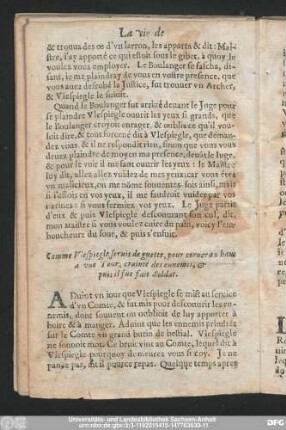 La vie de
& trouua des os d'vn larron, les apporta & dit: Mai-
stre, i'ay apporté ce qui estoit sous le gibet, à quoy le
voulez vous employer. Le Boulanger se fascha, di-
sant, ie me plaindray de vous en vostre presence, que
vous auez desrobé la Iustice, fut trouuer vn Archer,
& Vlespiegle le suiuit.
Quand le Boulanger fut arriué deuant le Iuge pour
se plaindre Vlespiegle ouurit les yeux si grands, que
le Boulanger croyoit enrager, & oublia ce qu'il vou-
loit dire, & tout forcené dit à Vlespiegle, que deman-
dez vous, & il me respondit rien, sinon que vous vous
deuez plaindre de moy en ma presence, deuāt le Iuge,
& pour le voir il me faut ouurir les yeux: le Maistre
luy dit, allez allez vuidez de mes yeux:
vn malicieux, on me nōme souuentes-fois ainsi, mais
si i'estois en vos yeux, il me faudroit vuider par vos
narines: si vous fermiez vos yeux. Le Iuge partit
d'eux & puis Vlespiegle descouurant son cul, dit,
mon Maistre si vous voulez cuire du pain, voicy l'em-
boucheure du four, & puis s'enfuit.
Comme Vlespiegle seruit de guette, pour corner au haut
d'vne Tour, crainte des ennemis, &
puis il fut fait soldat.
ADuint vn iour que Vlespiegle se mist au seruice
d'vn Comte, & fut mis pour descouurir les en-
nemis, dont souuent on oublioit de luy apporter à
boire & à manger. Aduint que les ennemis prindrēt
sur le Comte vn grand butin de bestial. Vlespiegle
ne sonnoit mot. Ce bruit vint au Comte, lequel dit à
Vlespiegle pourquoy demeurez vous si coy. Ie ne
Quelque temps apres
Universitäts- und Landesbibliothek Sachsen-Anhalt
urn:nbn:de:gbv:3:3-1192015415-147763630-11
DFG